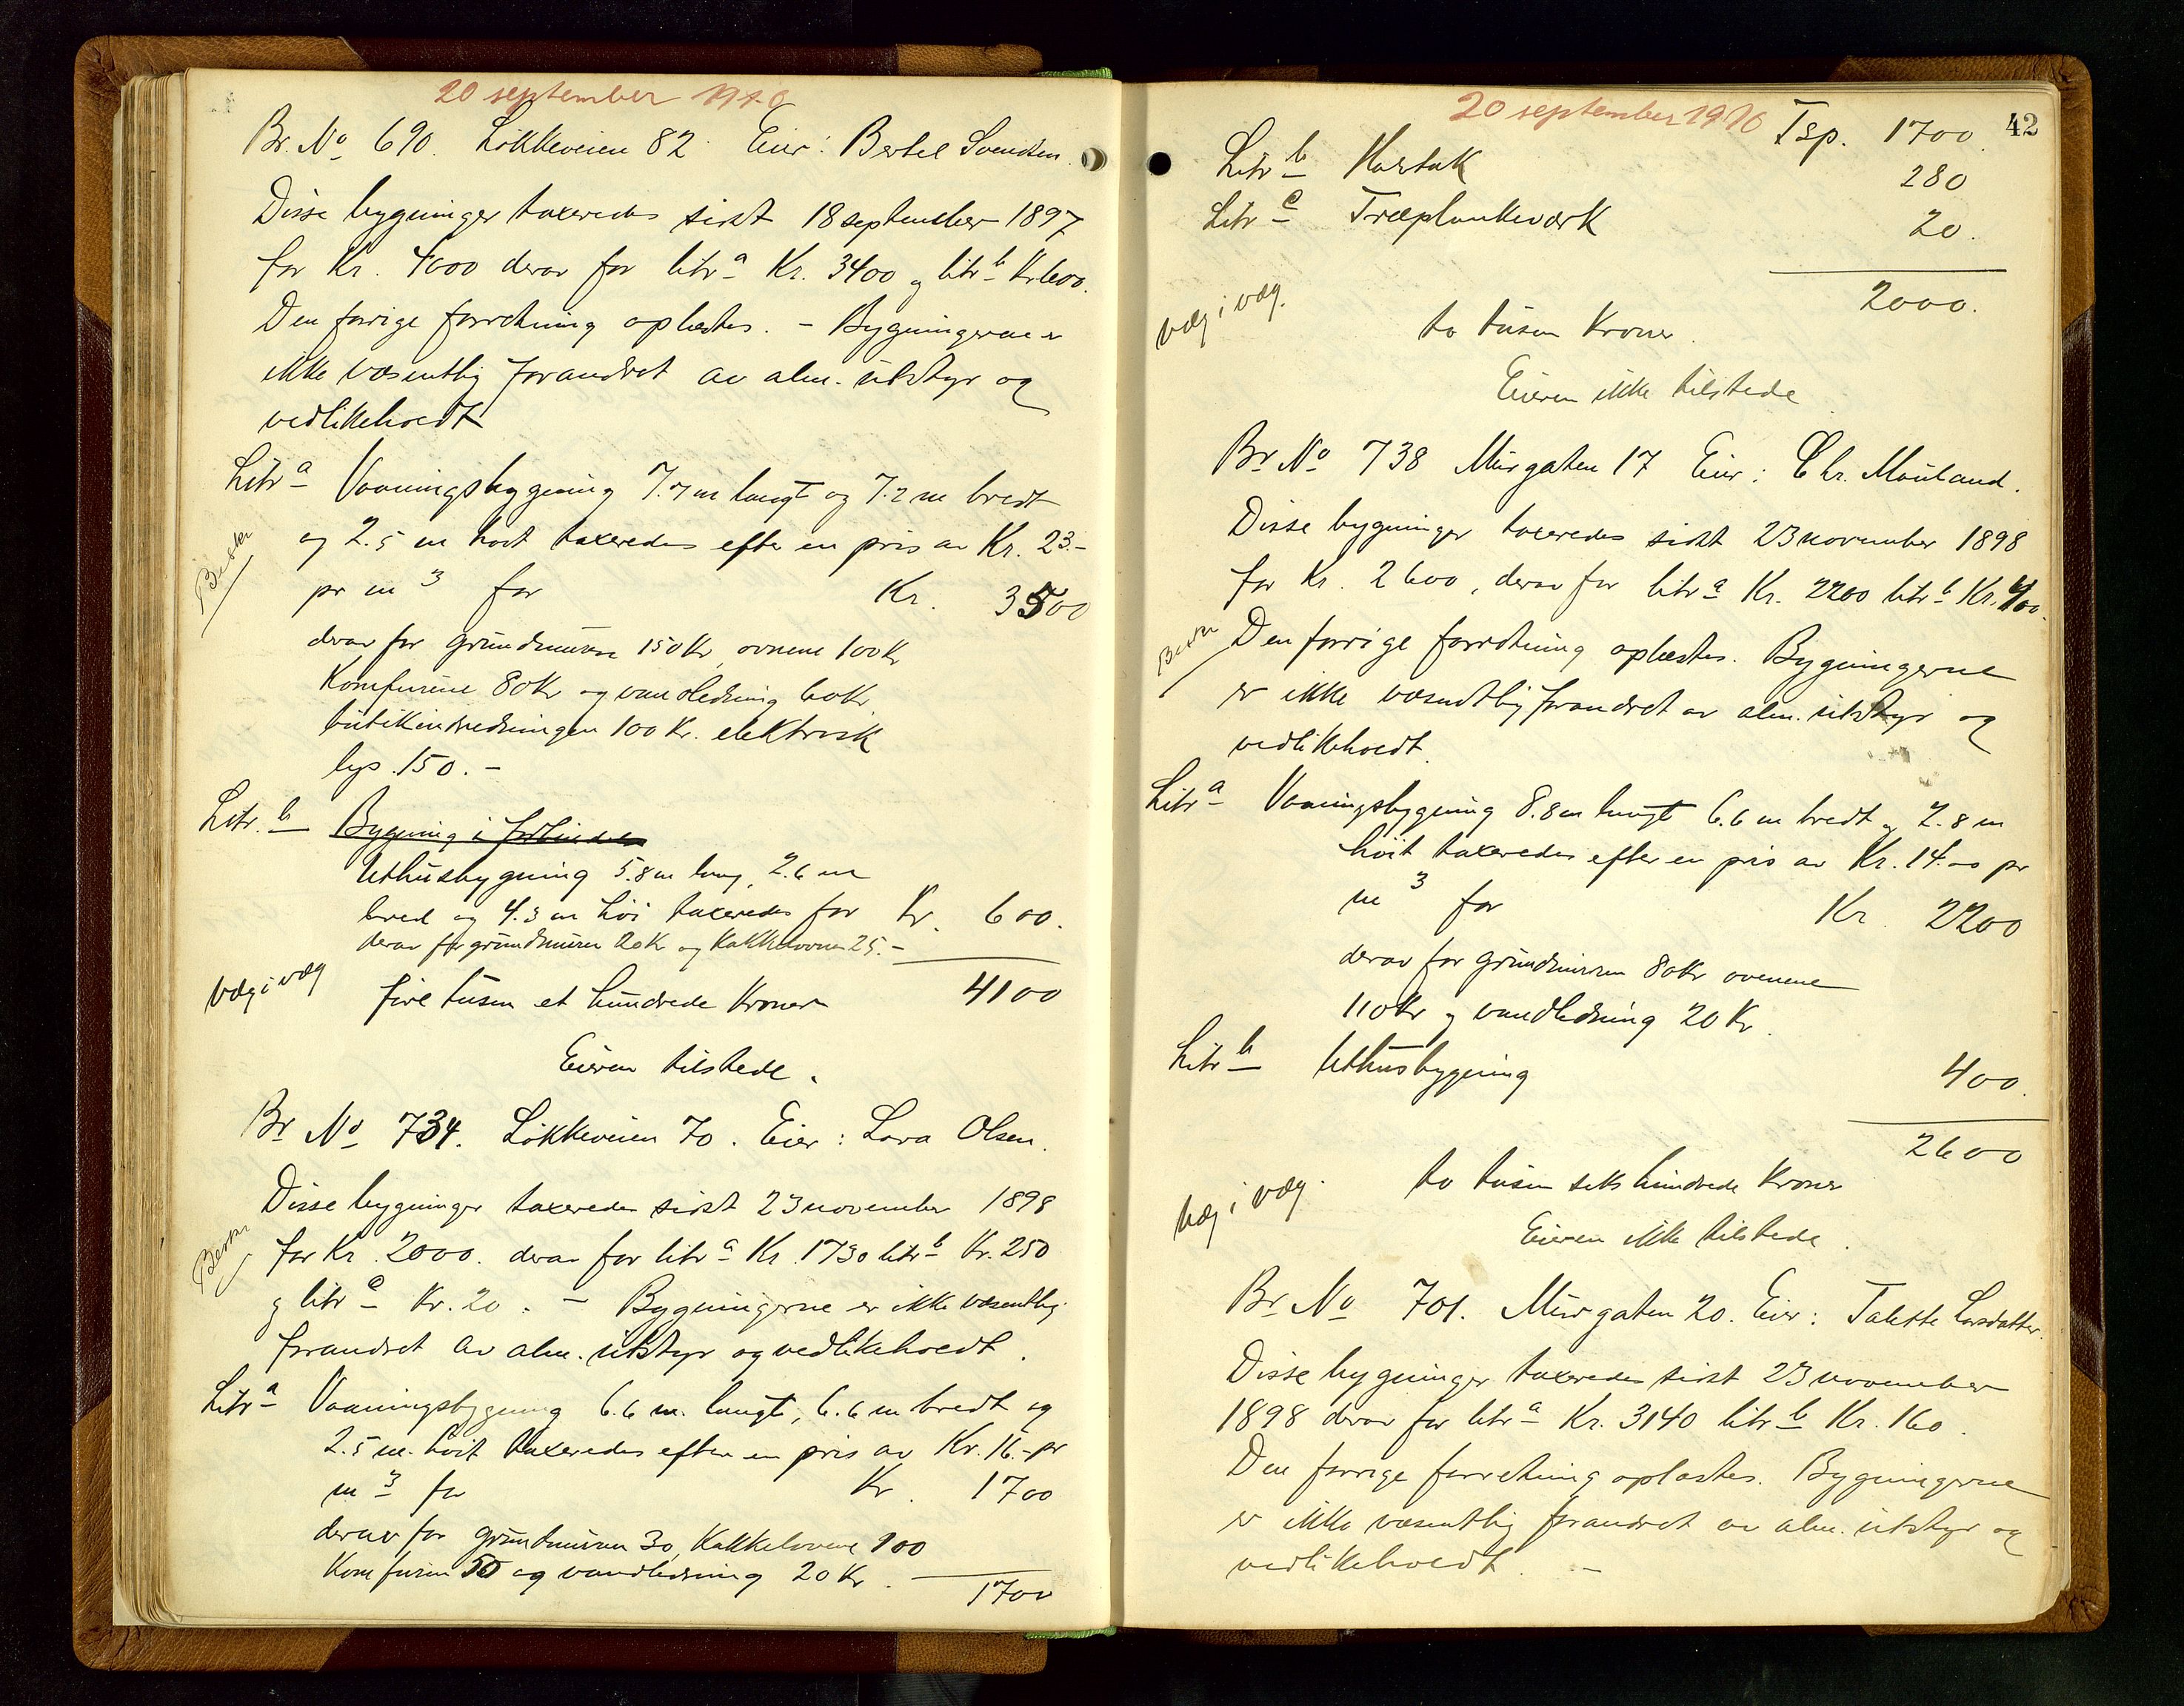 20 september 1910
Br. No 690. Løkkeveien 82. Eier: Bertel Svendsen.
Disse bygninger taxeredes sidst 18 september 1897
for Kr. 4000 derav for litr a Kr. 3400 og litr b Kr 600.
Den forrige forretning oplæstes. – Bygningerne er
ikke væsentlig forandret av alm. utstyr og
vedlikeholdt
Litr a Vaaningsbygning 7.7 m langt og 7.2 m bredt
og 2.5 m høit taxeredes efter en pris av Kr. 23.-
pr m3 for Kr. 3500
derav for grundmuren 150 Kr, ovnene 100 Kr
Komfurene 80 Kr og vandledning 60 Kr
butikindredningen 100 Kr. elektrisk
lys 150. –
Litr. b Bygning i forbindelse
Uthusbygning 5.8 m lang, 2.6 m
bred og 4.3 m høi taxeredes for Kr. 600.
derav for grundmuren 20 Kr og Kakkelovnen 25.–
væg i væg fire tusen et hundrede Kroner 4100
Eieren tilstede.
Br No 734. Løkkeveien 70. Eier: Lava Olsen.
Disse bygninger taxeredes sidst 23 november 1898
for Kr. 2000. derav for litr a Kr. 1730 litr b Kr. 250
og litr c Kr. 20. – Bygningerne er ikke væsentlig
forandret av alm. utstyr og vedlikeholdt.
Litr a Vaaningsbygning 6.6 m. langt, 6.6 m bredt og
2.5 m. høit taxeredes efter en pris av Kr. 16.- pr
m3 for Kr. 1700
derav for grundmuren 30, Kakkelovnene 100
Komfuren 50 og vandledning 20 Kr. 1700
20 september 1910 Tsp. 1700. 42
Litr b Halvtak 280
Litr c Træplankeværk 20.
2000.
væg i væg. to tusen Kroner.
Eieren ikke tilstede
Br No 738 Murgaten 17 Eier: Chr. Mauland.
Disse bygninger taxeredes sidst 23 november 1898
for Kr. 2600, derav for litr a Kr. 2200 litr b Kr. 400.
Den forrige forretning oplæstes. Bygningerne
er ikke væsentlig forandret av alm. utstyr og
vedlikeholdt.
Litr a Vaaningsbygning 8.8 m langt 6.6 m bredt og 2.8 m
høit taxeredes efter en pris av Kr. 14.00 pr
m3 for Kr. 2200
derav for grundmuren 80 Kr ovnene
110 Kr og vandledning 20 Kr.
Litr b Uthusbygning 400.
2600
væg i væg. to tusen seks hundrede Kroner
Eieren ikke tilstede.
Br No 701. Murgaten 20. Eier: Talette Larsdatter.
Disse bygninger taxeredes sidst 23 november
1898 derav for litr a Kr. 3140 litr b Kr. 160.
Den forrige forretning oplæstes. Bygningerne
er ikke væsentlig forandret av alm. utstyr og
vedlikeholdt. –